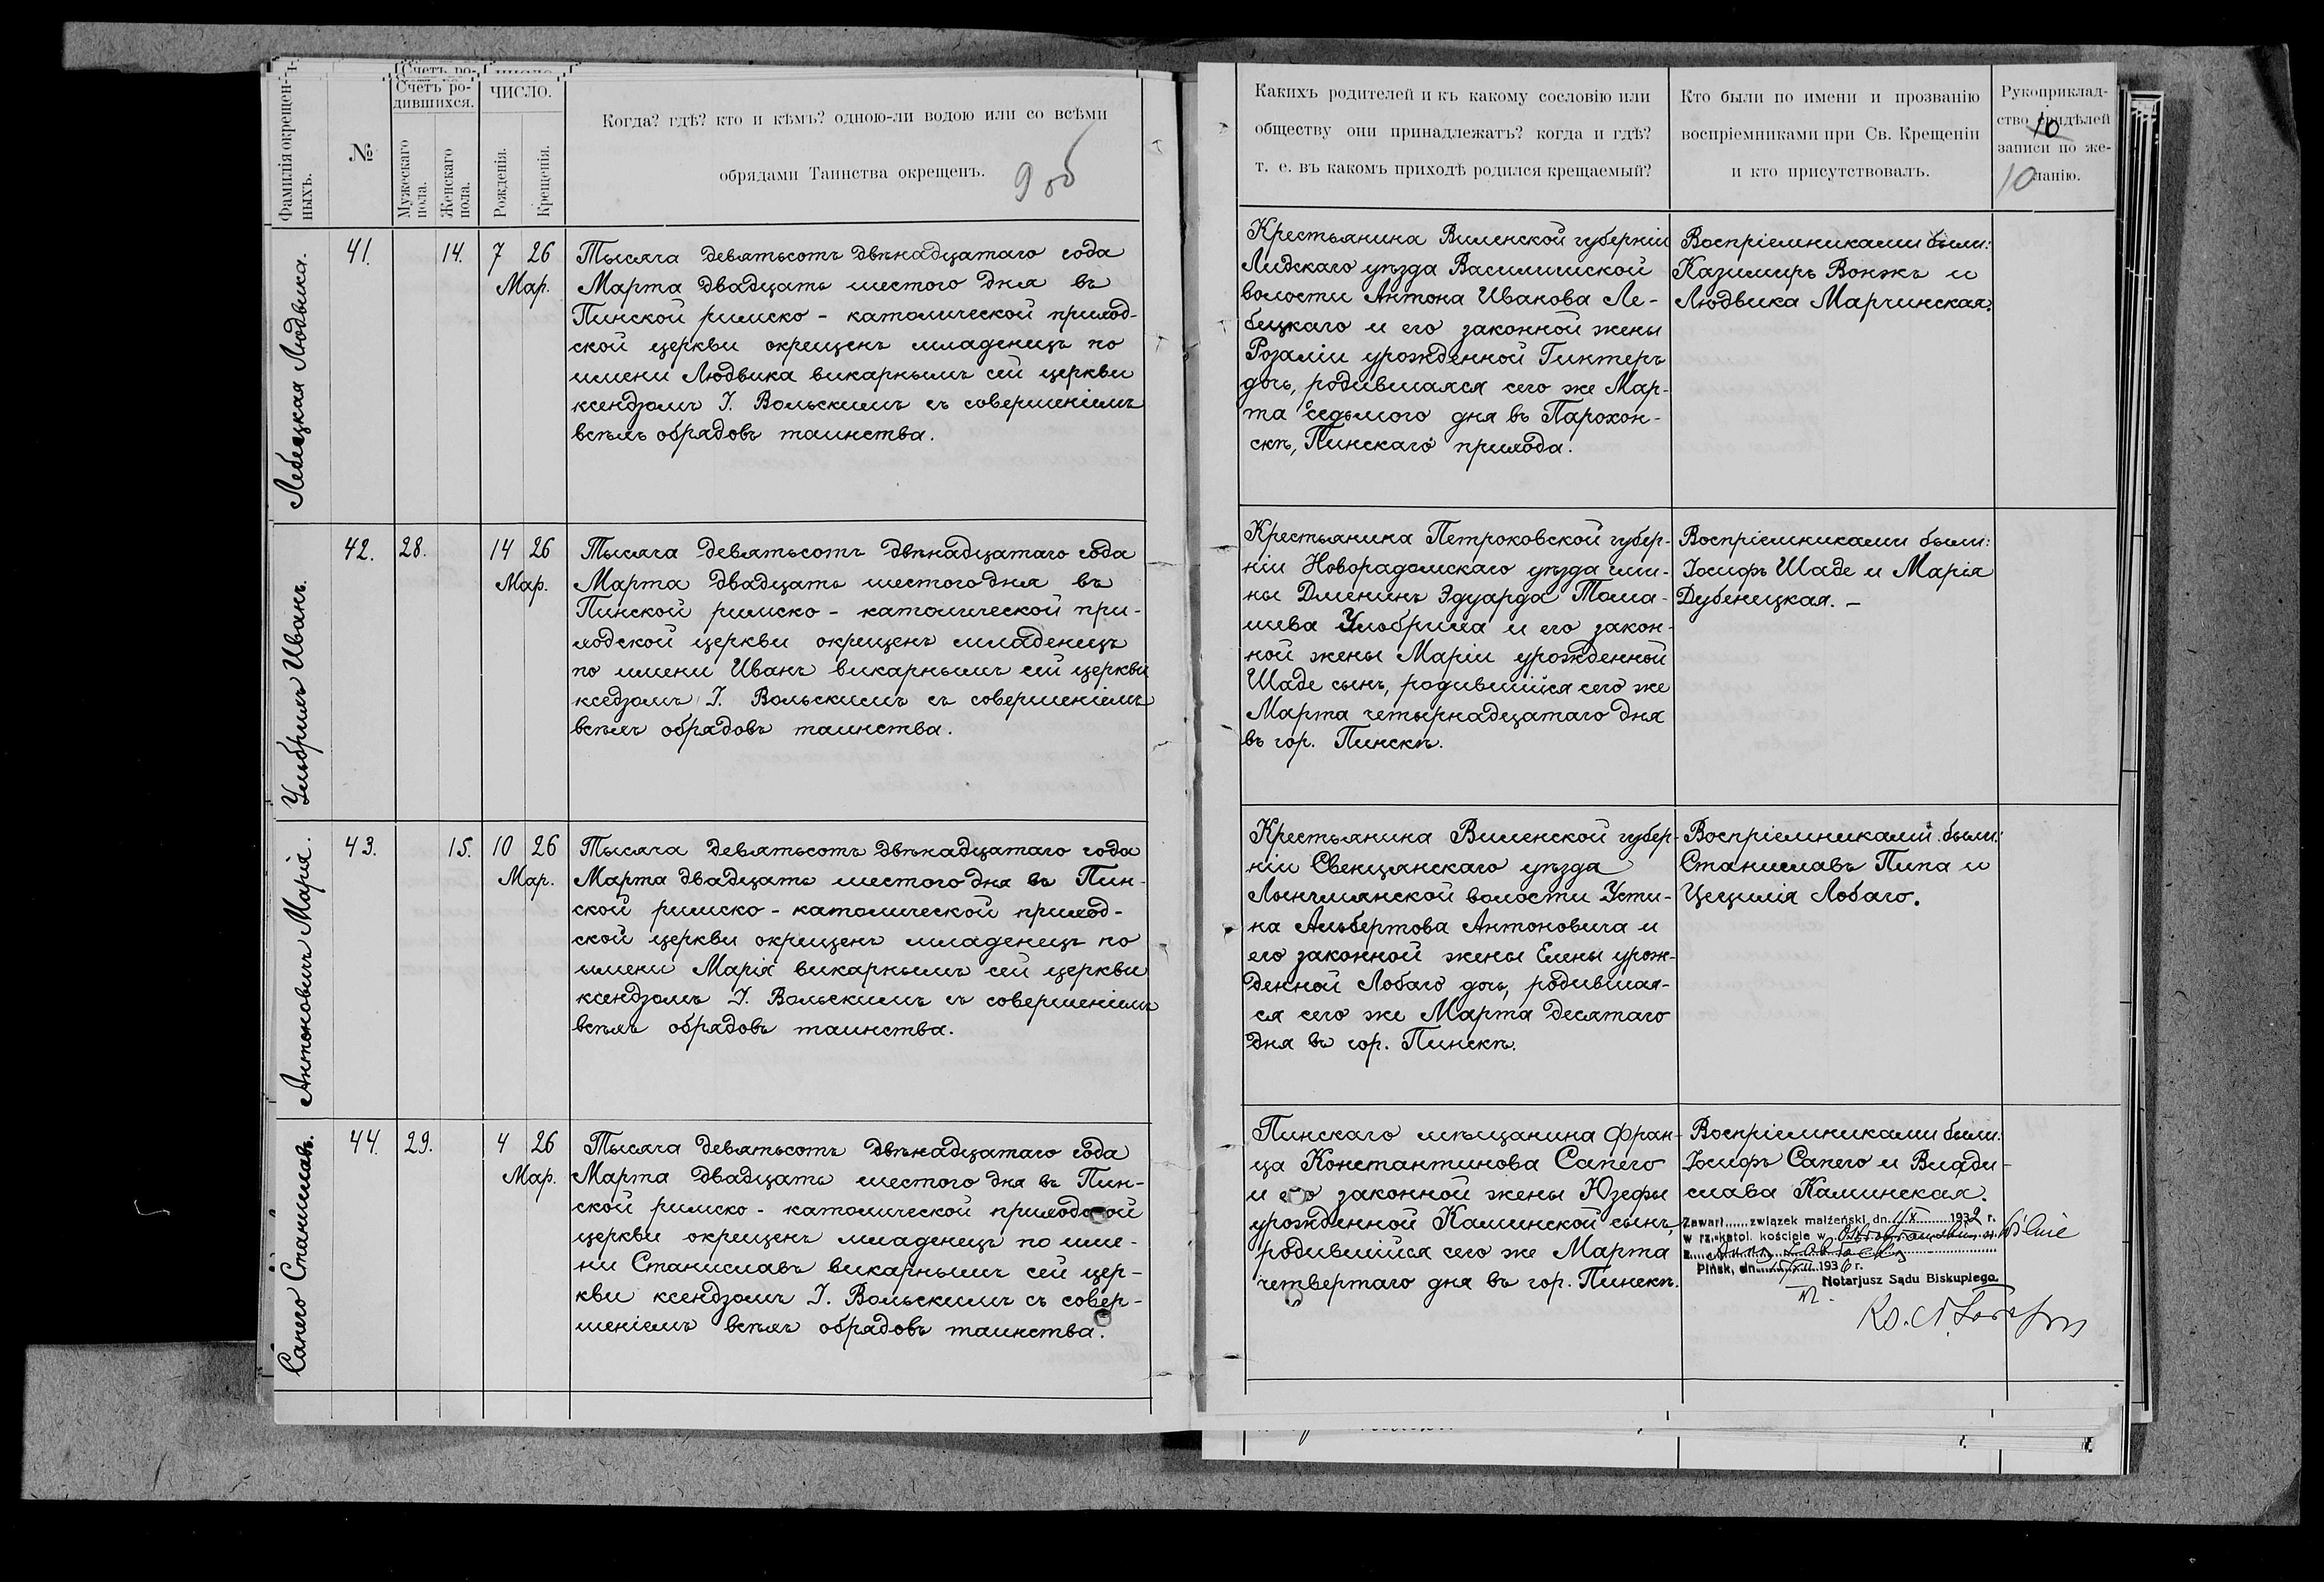 Фамилія окрещен-
ныхъ.
№
Счетъ ро-
дившихся.
Мужескаго
пола.
Женскаго
пола.
ЧИСЛО.
Рожденія.
Крещенія.
Когда? гдѣ? кто и кѣмъ? одною-ли водою или со всѣми
обрядами Таинства окрещенъ.
9 об
Какихъ родителей и къ какому сословію или
обществу они принадлежатъ? когда и гдѣ?
т. е. въ какомъ приходѣ родился крещаемый?
Кто были по имени и прозванію
воспріемниками при Св. Крещеніи
и кто присутствовалъ.
Рукоприклад-
ство придѣлей
записи по же-
ланію.
10
10
Лебецкая Людвика.
41.
14.
7 26
Мар.
Тысяча девятьсотъ двѣнадцатаго года
Марта двадцать шестого дня въ
Пинской римско-католической приход-
ской церкви окрещенъ младенецъ по
имени Людвика викарнымъ сей церкви
ксендзомъ І. Вольскимъ съ совершеніемъ
всѣхъ обрядовъ таинства.
Крестьянина Виленской губерніи
Лидскаго уѣзда Василишской
волости Антона Иванова Ле-
бецкаго и его законной жены
Розаліи урожденной Гинтеръ
дочь, родившаяся сего же Мар-
та седьмого дня въ Парохон-
скѣ, Пинскаго прихода.
Воспріемниками были:
Казимиръ Вонжъ и
Людвика Марчинская.
Ульбрихъ Иванъ.
42.
28.
14 26
Мар.
Тысяча девятьсотъ двѣнадцатаго года
Марта двадцать шестого дня въ
Пинской римско-католической при-
ходской церкви окрещенъ младенецъ
по имени Иванъ викарнымъ сей церкви
кседзомъ І. Вольскимъ съ совершеніемъ
всѣхъ обрядовъ таинства.
Крестьянина Петроковской губер-
ніи Новорадомскаго уѣзда гми-
ны Дменинъ Эдуарда Тома-
шева Ульбриха и его закон-
ной жены Маріи урожденной
Шаде сынъ, родившійся сего же
Марта четырнадцатаго дня
въ гор. Пинскѣ.
Воспріемниками были:
Іосифъ Шаде и Марія
Дубеницкая. —
Антоновичъ Марія.
43.
15.
10 26
Мар.
Тысяча девятьсотъ двѣнадцатаго года
Марта двадцать шестого дня въ Пин-
ской римско-католической приход-
ской церкви окрещенъ младенецъ по
имени Марія викарнымъ сей церкви
ксендзомъ І. Вольскимъ съ совершеніемъ
всѣхъ обрядовъ таинства.
Крестьянина Виленской губер-
ніи Свенцянскаго уѣзда
Лынгмянской волости Усти-
на Альбертова Антоновича и
его законной жены Елены урож-
денной Лобаго дочь, родившая-
ся сего же Марта десятаго
дня въ гор. Пинскѣ.
Воспріемниками были:
Станиславъ Пипа и
Цецилія Лобаго.
Сапего Станиславъ.
44.
29.
4 26
Мар.
Тысяча девятьсотъ двѣнадцатаго года
Марта двадцать шестого дня въ Пин-
ской римско-католической приходской
церкви окрещенъ младенецъ по име-
ни Станиславъ викарнымъ сей цер-
кви ксендзомъ І. Вольскимъ съ совер-
шеніемъ всѣхъ обрядовъ таинства.
Пинскаго мѣщанина Фран-
ца Константинова Сапего
и его законной жены Юзефы
урожденной Каминской сынъ,
родившійся сего же Марта
четвертаго дня въ гор. Пинскѣ.
Воспріемниками были:
Іосифъ Сапего и Влади-
слава Каминская.
Zawarł...... związek małżeński dn. X 1932 r.
w rz.-katol. kościele w Ostrobramskim w Wilnie
z Anną
Pińsk, dn. XII 1936 r.
Notarjusz Sądu Biskupiego.
Ks.